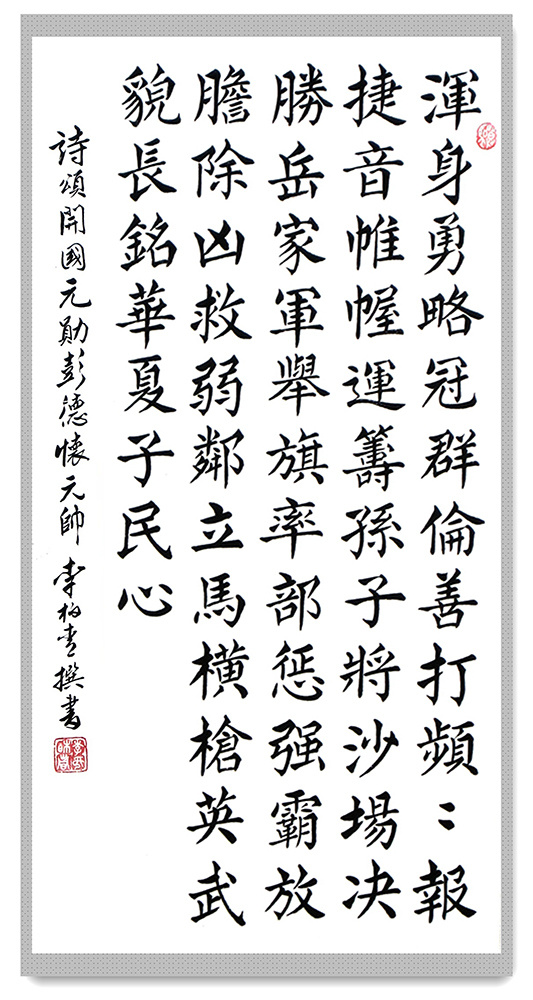 渾身勇略冠群倫善打頻〻報
捷音帷幄運籌孫子將沙場决
勝岳家軍舉旗率部惩强霸放
膽除凶救弱鄰立馬橫槍英武
貌長銘華夏子民心
詩頌開國元勛彭德懷元帥 李柏青撰書